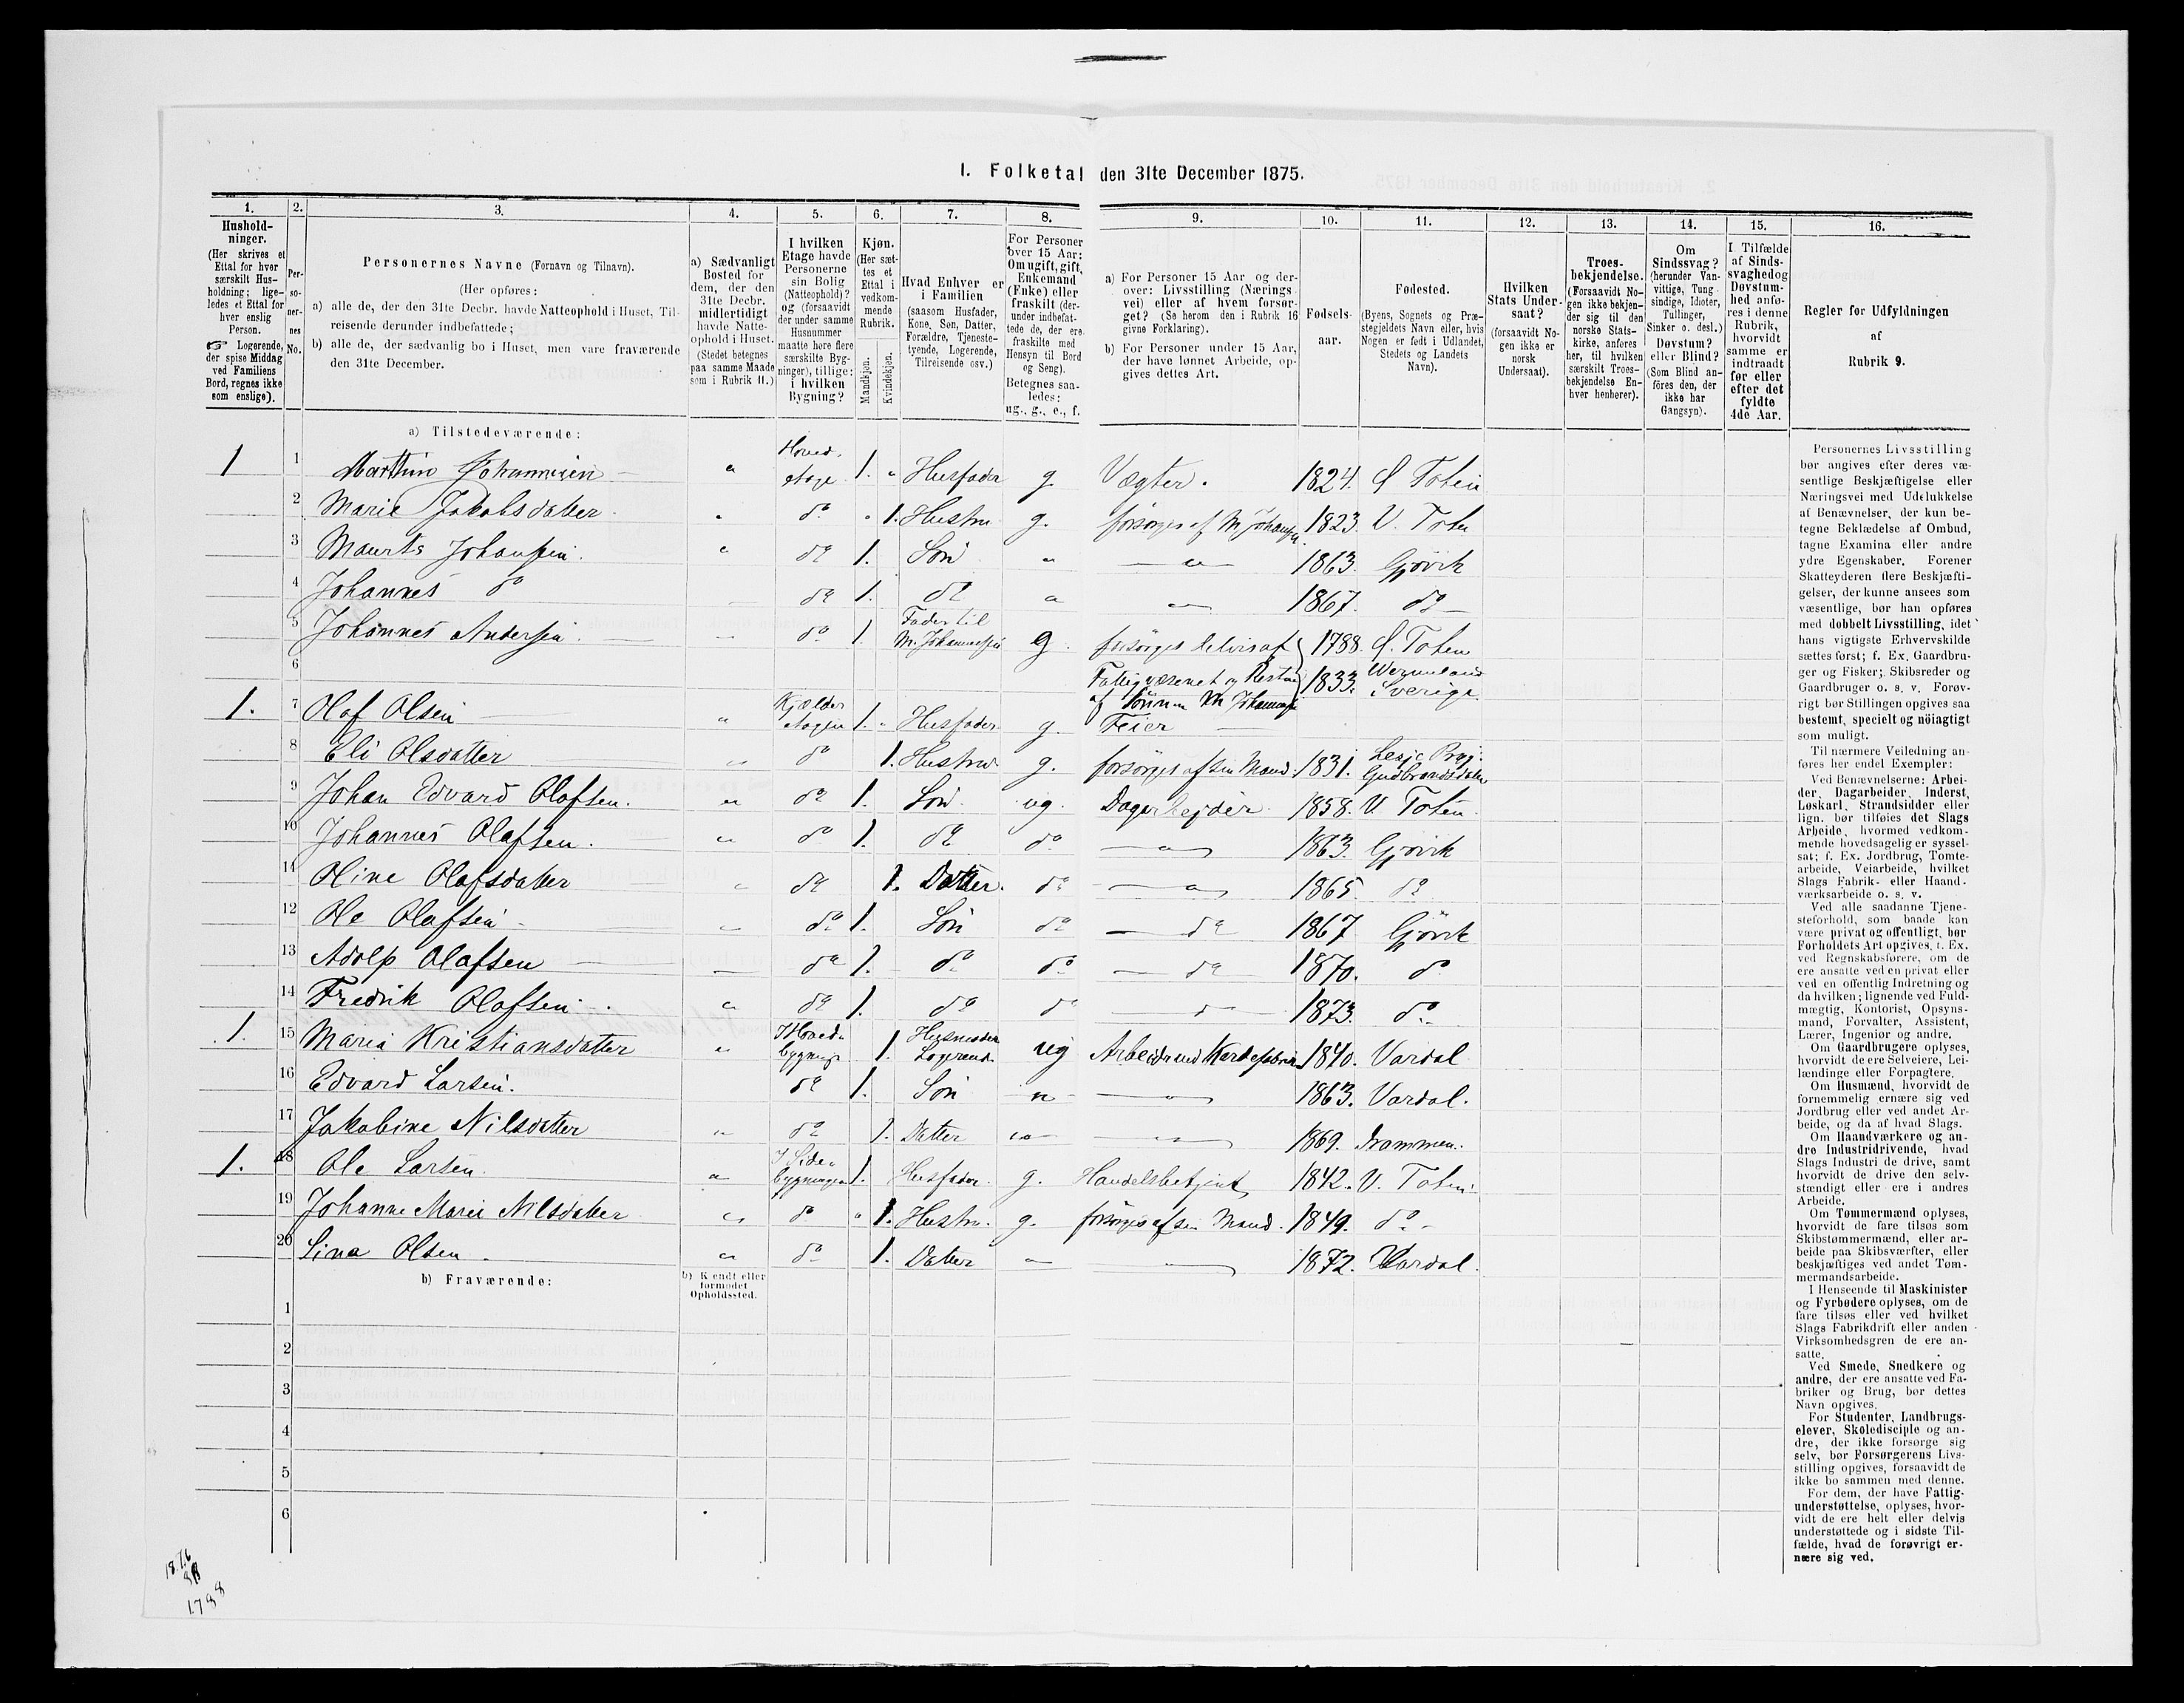 1. Folketal den 31te December 1875.
1. 2. 3. 4. 5. 6. 7. 8. 9. 10. 11. 12. 13. 14. 15. 16.
Hushold-
ninger.
(Her skrives et
Ettal for hver
særskilt Hus-
holdning; lige-
ledes et Ettal for
hver enslig
Person.
☞ Logerende,
der spise Middag
ved Familiens
Bord, regnes ikke
som enslige).
Per-
so-
ner-
nes
No.
Personernes Navne (Fornavn og Tilnavn).
(Her opføres:
a) alle de, der den 31te Decbr. havde Natteophold i Huset, Til-
reisende derunder indbefattede;
b) alle de, der sædvanlig bo i Huset, men vare fraværende
den 31te December.
a) Sædvanligt
Bosted for
dem, der den
31te Decbr.
midlertidigt
havde Natte-
ophold i Huset.
(Stedet betegnes
paa samme Maade
som i Rubrik 11.)
I hvilken
Etage havde
Personerne
sin Bolig
(Natteophold)?
og (forsaavidt
der under samme
Husnummer
maatte høre flere
særskilte Byg-
ninger), tillige:
i hvilken
Bygning?
Kjøn.
(Her sæt-
tes et
Ettal i
vedkom-
mende
Rubrik.
Mandkjøn.
Kvindekjøn.
Hvad Enhver er
i Familien
(saasom Husfader,
Kone, Søn, Datter,
Forældre, Tjeneste-
tyende, Logerende,
Tilreisende osv.)
For Personer
over 15 Aar:
Om ugift, gift,
Enkemand
(Enke) eller
fraskilt (der-
under indbefat-
tede de, der ere
fraskilte med
Hensyn til Bord
og Seng).
Betegnes saa-
ledes:
ug., g., e., f.
a) For Personer 15 Aar og der-
over: Livsstilling (Nærings
vei) eller af hvem forsør-
get? (Se herom den i Rubrik 16
givne Forklaring).
b) For Personer under 15 Aar,
der have lønnet Arbeide, op-
gives dettes Art.
Fødsels-
aar.
Fødested.
(Byens, Sognets og Præ-
stegjeldets Navn eller, hvis
Nogen er født i Udlandet,
Stedets og Landets
Navn).
Hvilken
Stats Under-
saat?
(forsaavidt No-
gen ikke er
norsk
Undersaat).
Troes-
bekjendelse.
(Forsaavidt No-
gen ikke bekjen-
der sig til den
norske Stats-
kirke, anføres
her, til hvilken
særskilt Troes-
bekjendelse En-
hver henhører).
Om
Sindssvag?
(herunder Van-
vittige, Tung
sindige, Idioter,
Tullinger,
Sinker o. desl.)
Døvstum?
eller Blind?
(Som Blind an-
föres den, der
ikke har
Gangsyn).
I Tilfælde
af Sinds-
svaghed og
Døvstum-
hed anfø-
res i denne
Rubrik,
hvorvidt
samme er
indtraadt
før eller
efter det
fyldte
4de Aar.
Regler for Udfyldningen
af
Rubrik 9.
a) Tilstedeværende:
1 1 Marthin Johannesen " Hoved. etage 1. " Husfader g. Vægter. 1824. Ö Toten
2 Marie Jakobsdatter " do " 1. Hustru g. forsørges af M Johansen 1823. V. Toten
3 Maurts Johansen. " do 1. Sön " " 1863. Gjövik
4 Johannes do do 1. do " " 1867. do
5 Johannes Andersen. do 1. Fader til M. Johannessen g. forsörges delvis af 1788. Ö. Toten
6 Fattigvæsenet og Resten af Sönnen M Johannesen
1. 7 Olaf Olsen " Kjælder etagen 1. " Husfader g. Feier 1833. Wermeland Sverige
8 Eli Olsdatter " do 1. Hustru g. forsörges af sin Mand. 1831. Lesje Prgj. Gudbrandsdalen
9 Johan Edvard Olafsen. " do 1. Sön ug. Dagarbejder 1858. V Toten.
10 Johannes Olafsen. " do 1. do do " 1863. Gjövik
11 Oline Olafsdatter " do 1. Datter. do " 1865. do
12 Ole Olafsen " do 1. Sön do do 1867 Gjövik
13 Adolp Olafsen do 1. do do do 1870. do
14 Fredrik Olafsen " do 1. do do 1873. do
1. 15 Maria Kristiansdatter " I Hoved bygning 1. Husmoder Logerend. ug Arbeider ved Kardefabrik 1840. Vardal
16 Edvard Larsen. do 1. Sön " " 1863. Vardal.
17 Jakobine Nilsdatter " do 1. Datter " " 1869. Drammen.
1. 18 Ole Larsen. " I Side bygningen 1. Husfader. g. Handelsbetjent 1842. V. Toten
19 Johanne Marie Nilsdatter " do " 1. Hustru. g. forsörges af sin Mand. 1849. do
20 Lina Olsen " do 1. Datter 1872. Vardal.
b) Fraværende:
b) Kendt eller
formodet
Opholdssted.
1
2
3
4
5
6
Personernes Livsstilling
bør angives efter deres væ-
sentlige Beskjæftigelse eller
Næringsvei med Udelukkelse
af Benævnelser, der kun be-
tegne Beklædelse af Ombud,
tagne Examina eller andre
ydre Egenskaber. Forener
Skatteyderen flere Beskjæfti-
gelser, der kunne ansees som
væsentlige, bør han opføres
med dobbelt Livsstilling, idet
hans vigtigste Erhvervskilde
sættes først; f. Ex. Gaardbru-
ger og Fisker; Skibsreder og
Gaardbruger o. s. v. Forøv-
rigt bør Stillingen opgives saa
bestemt, specielt og nöiagtigt
som muligt.
Til nærmere Veiledning an-
føres her endel Exempler:
Ved Benævnelserne: Arbei-
der, Dagarbeider, Inderst,
Løskarl, Strandsidder eller
lign. bør tilføies det Slags
Arbeide, hvormed vedkom-
mende hovedsagelig er syssel-
sat; f. Ex. Jordbrug, Tomte-
arbeide, Veiarbeide, hvilket
Slags Fabrik- eller Haand-
værksarbeide o. s. v.
Ved alle saadanne Tjene-
steforhold, som baade kan
være privat og offentligt, bør
Forholdets Art opgives, f. Ex.
ved Regnskabsførere, om de
ere ansatte ved en privat eller
ved en offentlig Indretning og
da hvilken; lignende ved Fuld-
mægtig, Kontorist, Opsyns-
mand, Forvalter, Assistent,
Lærer, Ingeniør og andre.
Om Gaardbrugere oplyses,
hvorvidt de ere Selveiere, Lei-
lændinge eller Forpagtere.
Om Husmænd, hvorvidt de
fornemmelig ernære sig ved
Jordbrug eller ved andet Ar-
beide, og da af hvad Slags.
Om Haandværkere og an-
dre Industridrivende, hvad
Slags Industri de drive, samt
hvorvidt de drive den selv-
stændigt eller ere i andres
Arbeide.
Om Tømmermænd oplyses,
hvorvidt de fare tilsøs som
Skibstømmermænd, eller ar-
beide paa Skibsværfter, eller
beskjæftiges ved andet Tøm-
mermandsarbeide.
I Henseende til Maskinister
og Fyrbødere oplyses, om de
fare tilsøs eller ved hvilket
Slags Fabrikdrift eller anden
Virksomhedsgren de ere an-
satte.
Ved Smede, Snedkere og
andre, der ere ansatte ved Fa-
briker og Brug, bør dettes
Navn opgives.
For Studenter, Landbrugs-
elever, Skoledisciple og an-
dre, der ikke forsørge sig
selv, bør Forsørgerens Livs-
stilling opgives, forsaavidt de
ikke bo sammen med denne.
For dem, der have Fattig-
understøttelse, oplyses, hvor-
vidt de ere helt eller delvis
understøttede og i sidste Til-
fælde, hvad de forøvrigt er-
nære sig ved.
1876
88
1788